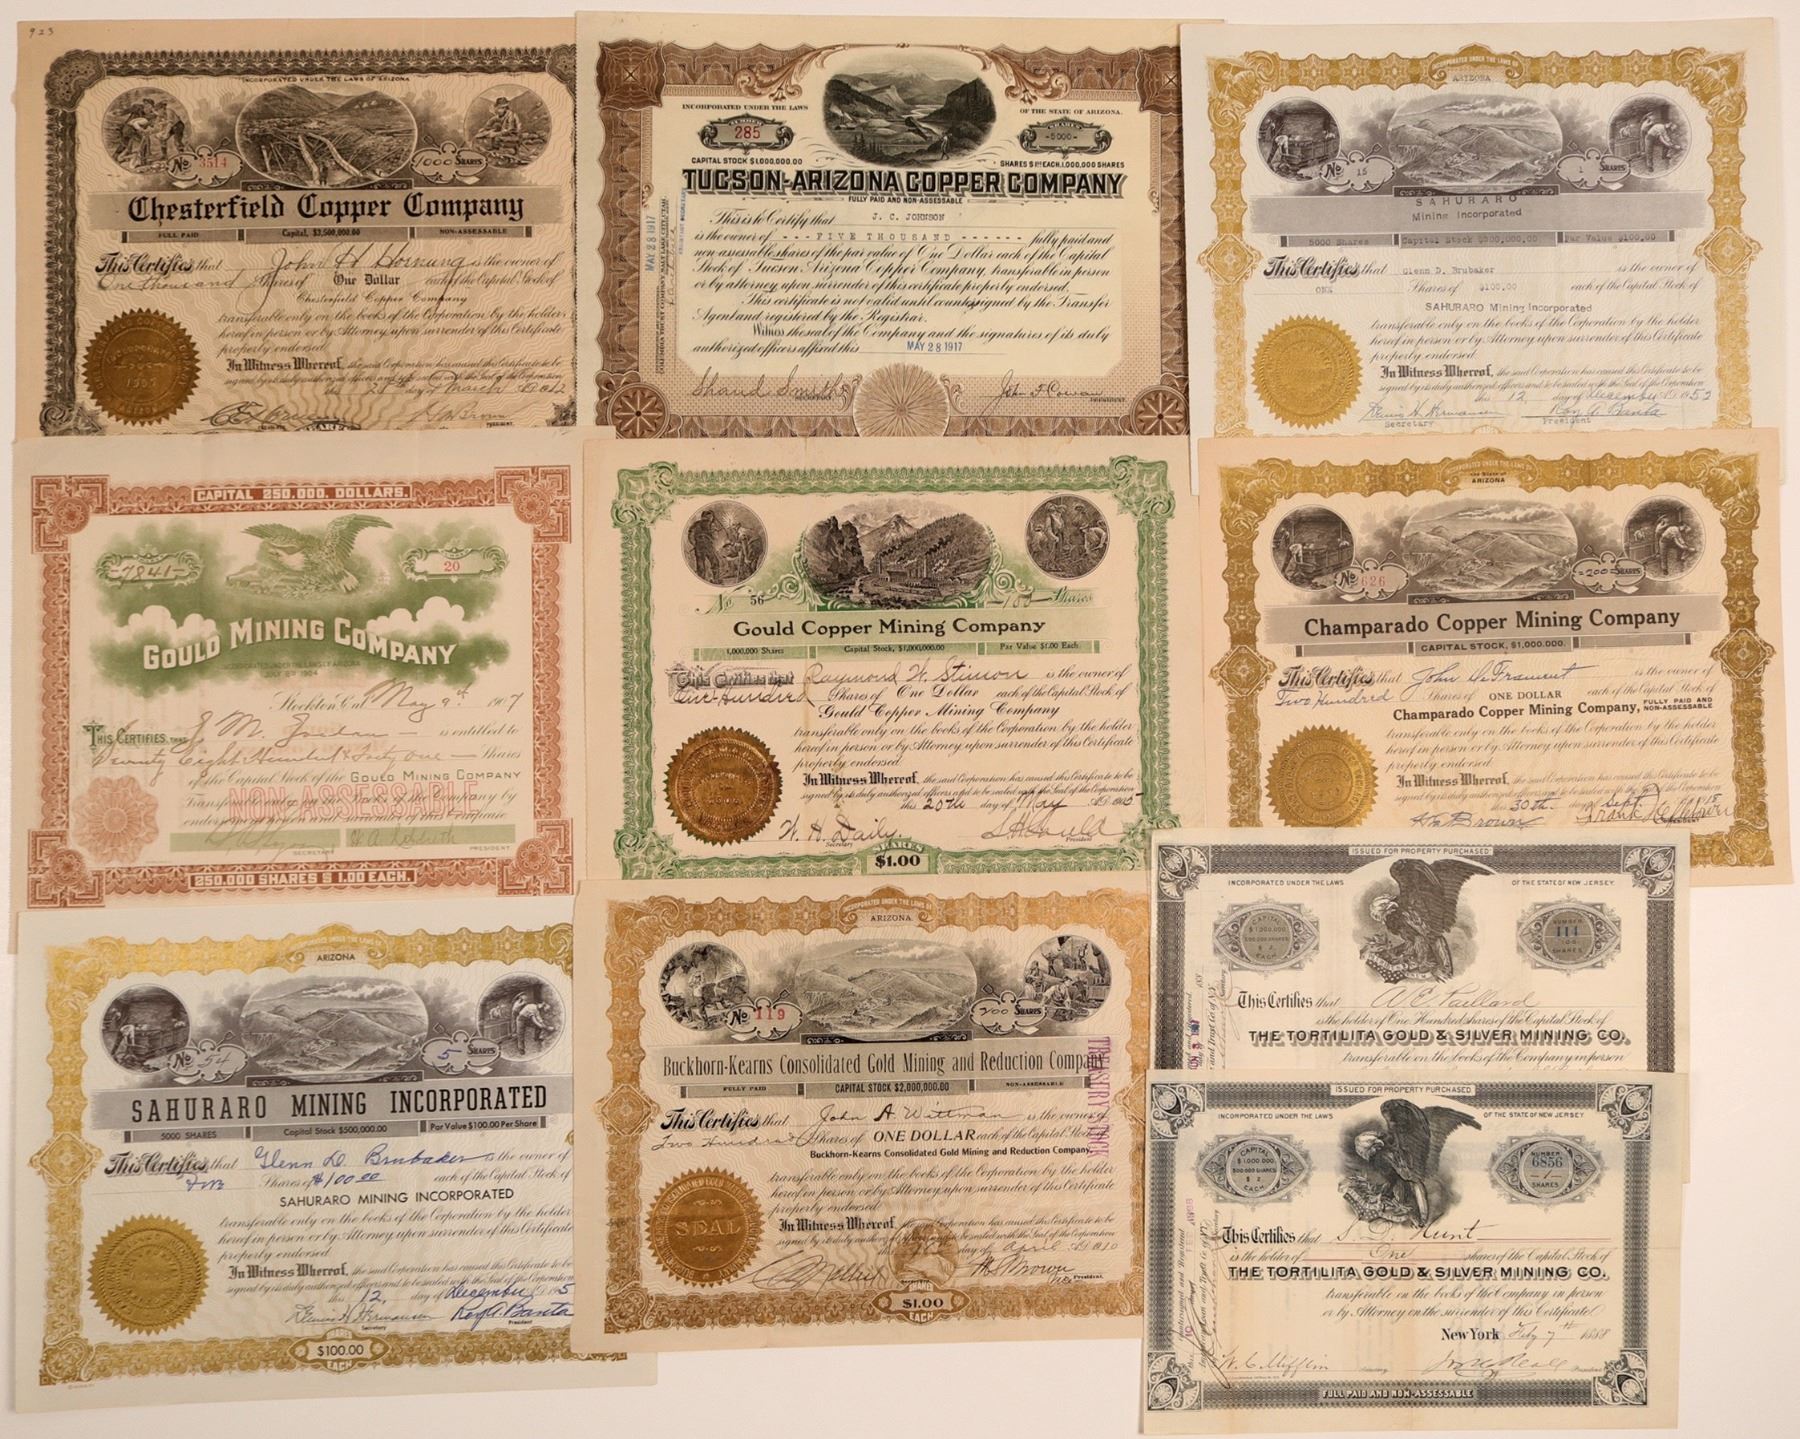 923
INCORPORATED UNDER THE LAWS OF ARIZONA
No 3514
1000 SHARES
Chesterfield Copper Company
FULL PAID Capital, $3,500,000.00 NON-ASSESSABLE
This Certifies that John H Hornung is the owner of
One thousand Shares of One Dollar each of the Capital Stock of
Chesterfield Copper Company
transferable only on the books of the Corporation by the holder
hereof in person or by Attorney upon surrender of this Certificate
properly endorsed.
In Witness Whereof, the said Corporation has caused this Certificate to be
signed by its duly authorized officers and to be sealed with the Seal of the Corporation
day of March A.D. 1912
INCORPORATED UNDER THE LAWS OF THE STATE OF ARIZONA.
NUMBER 285
SHARES -5000-
CAPITAL STOCK $1,000,000.00 SHARES $1 EACH, 1,000,000 SHARES
TUCSON-ARIZONA COPPER COMPANY
FULLY PAID AND NON-ASSESSABLE
This is to Certify that J. C. JOHNSON
is the owner of --- FIVE THOUSAND ------ fully paid and
non-assessable shares of the par value of One Dollar each of the Capital
Stock of Tucson-Arizona Copper Company, transferable in person
or by attorney upon surrender of this certificate properly endorsed.
This certificate is not valid until countersigned by the Transfer
Agent and registered by the Registrar.
Witness the seal of the Company and the signatures of its duly
authorized officers affixed this MAY 28 1917
MAY 28 1917
Shard Smith
John F Cowan
PRESIDENT
INCORPORATED UNDER THE LAWS OF
ARIZONA
No 15
1 SHARES
SAHURARO
Mining Incorporated
5000 Shares Capital Stock $500,000.00 Par Value $100.00
This Certifies that Glenn D. Brubaker is the owner of
ONE Shares of $100.00 each of the Capital Stock of
SAHURARO Mining Incorporated
transferable only on the books of the Corporation by the holder
hereof in person or by Attorney upon surrender of this Certificate
properly endorsed.
In Witness Whereof, the said Corporation has caused this Certificate to be
signed by its duly authorized officers and to be sealed with the Seal of the Corporation
this 12. day of December A.D. 1952
Dennis H. Hermansen Roy A. Banta
Secretary President
CAPITAL 250,000. DOLLARS.
-7841-
20
GOULD MINING COMPANY
INCORPORATED UNDER THE LAWS OF ARIZONA
JULY 8TH 1904
Stockton Cal May 9th 1907
THIS CERTIFIES THAT J M. Jordan is entitled to
Seventy Eight Hundred & Forty One Shares
of the Capital Stock of the GOULD MINING COMPANY
NON-ASSESSABLE
Transferable only on the Books of the Company by
endorsement
SECRETARY PRESIDENT
250,000 SHARES $1.00 EACH.
No 56
100 Shares
Gould Copper Mining Company
1,000,000 Shares Capital Stock, $1,000,000.00 Par Value $1.00 Each
This Certifies that Raymond W. Stimson is the owner of
One Hundred Shares of One Dollar each of the Capital Stock of
Gould Copper Mining Company
transferable only on the books of the Corporation by the holder
hereof in person or by Attorney upon surrender of this Certificate
properly endorsed.
In Witness Whereof, the said Corporation has caused this Certificate to be
signed by its duly authorized officers and to be sealed with the Seal of the Corporation
this 20th day of May A.D. 1905
W. H. Daily. S. H. Gould
Secretary President
SHARES
$1.00
INCORPORATED UNDER THE LAWS OF
THE STATE OF
ARIZONA
No 626
=200= SHARES
Champarado Copper Mining Company
CAPITAL STOCK, $1,000,000.
This Certifies that John is the owner of
Two Hundred Shares of ONE DOLLAR each of the Capital Stock of
Champarado Copper Mining Company, FULLY PAID AND NON-ASSESSABLE
transferable only on the books of the Corporation by the holder
hereof in person or by Attorney upon surrender of this Certificate
properly endorsed.
In Witness Whereof, the said Corporation has caused this Certificate to be
signed by its duly authorized officers and to be sealed with the Seal of the Corporation
this 30th day Sept
Brown
INCORPORATED UNDER THE LAWS OF
ARIZONA
No 54
5 SHARES
SAHURARO MINING INCORPORATED
5000 SHARES Capital Stock $500,000.00 Par Value $100.00 Per Share
This Certifies that Glenn D. Brubaker is the owner of
Shares of $100.00 each of the Capital Stock of
SAHURARO MINING INCORPORATED
transferable only on the books of the Corporation by the holder
hereof in person or by Attorney upon surrender of this Certificate
properly endorsed.
In Witness Whereof, the said Corporation has caused this Certificate to be
signed by its duly authorized officers and to be sealed with the Seal of the Corporation
this 12. day of December
Dennis H. Hermansen Roy A. Banta
Secretary President
SHARES
$100.00
EACH
INCORPORATED UNDER THE LAWS OF
ARIZONA.
No 119
200 SHARES
Buckhorn-Kearns Consolidated Gold Mining and Reduction Company
FULLY PAID CAPITAL STOCK $2,000,000.00 NON-ASSESSABLE
TREASURY STOCK
This Certifies that John A Wittman is the owner of
Two Hundred Shares of ONE DOLLAR each of the Capital Stock of
Buckhorn-Kearns Consolidated Gold Mining and Reduction Company.
transferable only on the books of the Corporation by the holder
hereof in person or by Attorney upon surrender of this Certificate
properly endorsed.
In Witness Whereof, the said Corporation has caused this Certificate to be
signed by its duly authorized officers and to be sealed with the Seal of the Corporation
day of April A.D. 1910
SEAL
Brown
Vice President.
SHARES
$1.00
EACH
ISSUED FOR PROPERTY PURCHASED
INCORPORATED UNDER THE LAWS OF THE STATE OF NEW JERSEY
CAPITAL $1,000,000 500,000 SHARES $2 EACH
NUMBER 114 100 SHARES
This Certifies that A E. Paillard
is the holder of One Hundred shares of the Capital Stock of
THE TORTILITA GOLD & SILVER MINING CO.
transferable on the books of the Company in person
ISSUED FOR PROPERTY PURCHASED
INCORPORATED UNDER THE LAWS OF THE STATE OF NEW JERSEY
CAPITAL $1,000,000 500,000 SHARES $2 EACH
NUMBER 6856 SHARES
This Certifies that S. D. Hunt
is the holder of One shares of the Capital Stock of
THE TORTILITA GOLD & SILVER MINING CO.
transferable on the books of the Company in person
or by Attorney on the surrender of this Certificate
New York Feby 7th 1888
W. C. Mifflin
FULL PAID AND NON-ASSESSABLE